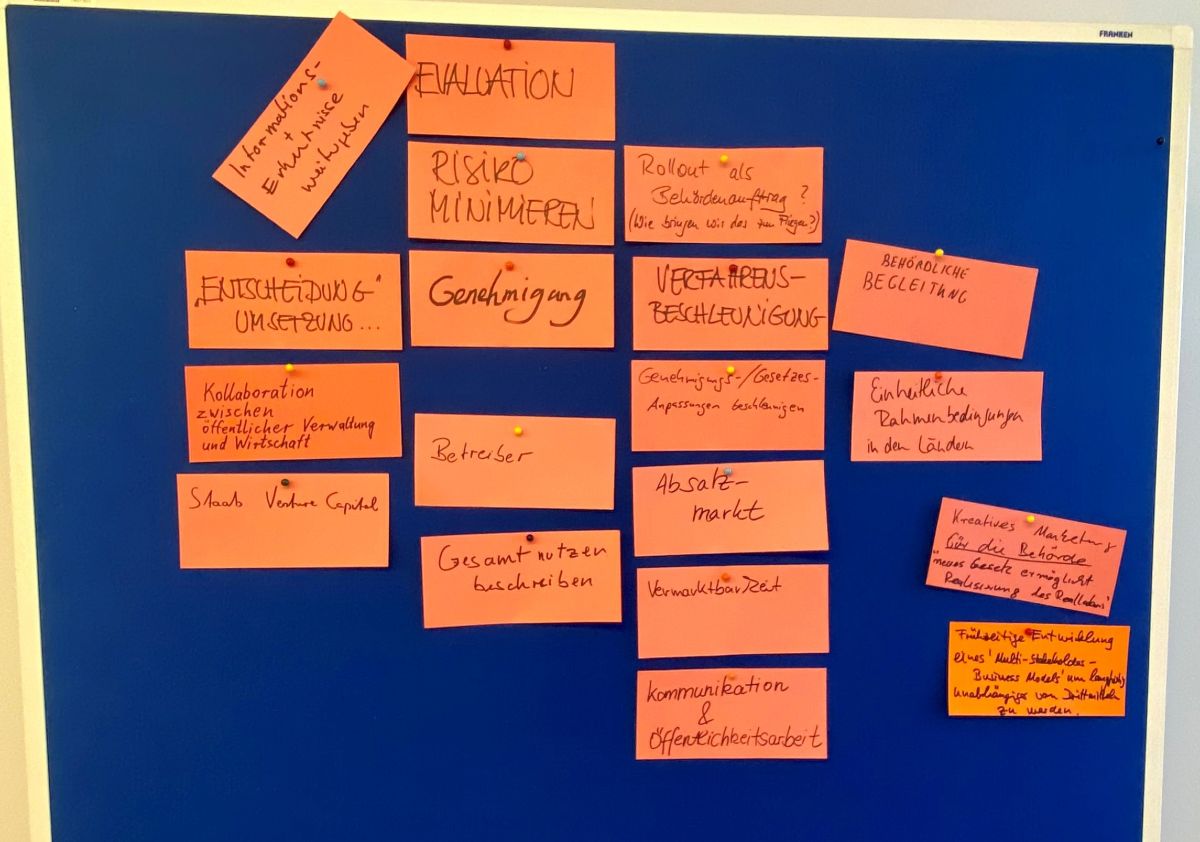 FRANKEN
Informations-
+
Erkenntnisse
weitergeben
EVALUATION
RISIKO
MINIMIEREN
Rollout als
Behördenauftrag ?
(Wie bringen wir das zum Fliegen?)
„ENTSCHEIDUNG"
UMSETZUNG...
Genehmigung
VERFAHRENS-
BESCHLEUNIGUNG
BEHÖRDLICHE
BEGLEITUNG
Kollaboration
zwischen
öffentlicher Verwaltung
und Wirtschaft
Betreiber
Genehmigungs-/Gesetzes-
Anpassungen beschleunigen
Einheitliche
Rahmenbedingungen
in den Ländern
Staab Venture Capital
Gesamtnutzen
beschreiben
Absatz-
markt
Vermarktbar/Zeit
Kommunikation
&
Öffentlichkeitsarbeit
Kreatives Marketing
für die Behörde
"neues Gesetz ermöglicht
Realisierung des Reallabors"
Frühzeitige Entwicklung
eines 'Multi-stakeholder-
Business Models' um langfristig
unabhängiger von Drittmitteln
zu werden.